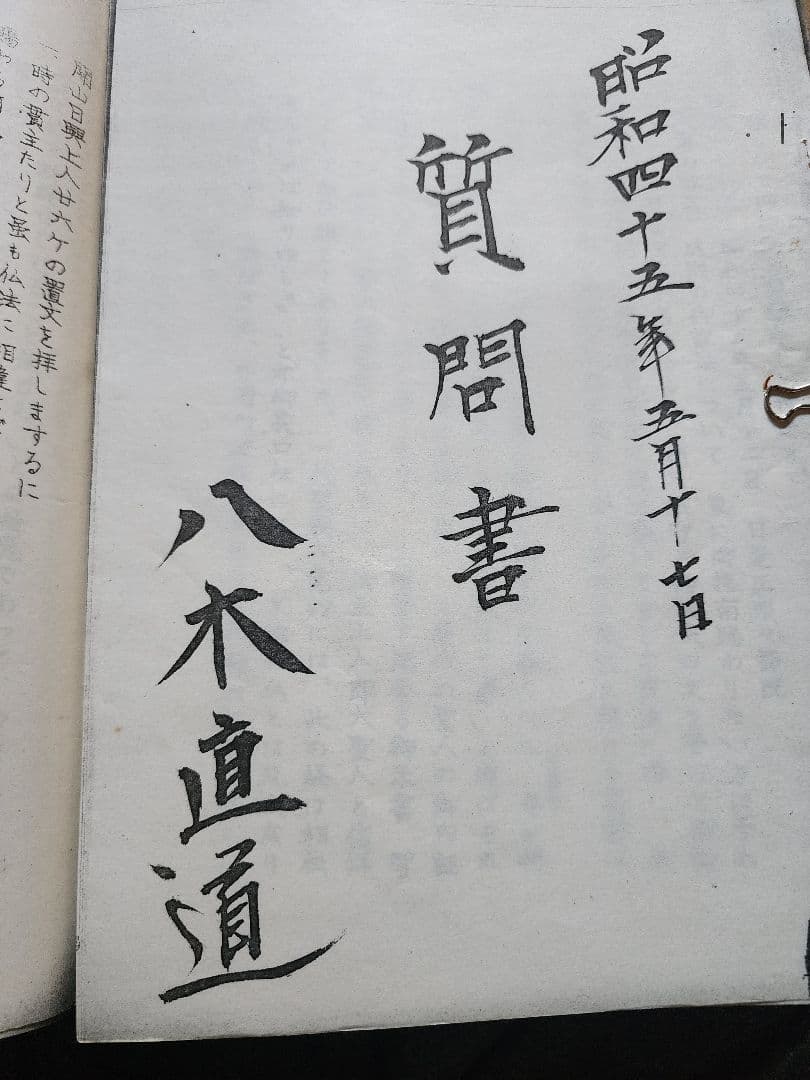 昭和四十五年五月十七日
質問書
八木直道
開山日興上人廿六ケの置文を拝しまするに
一、時の貫主たりと虽も仏法に相違して